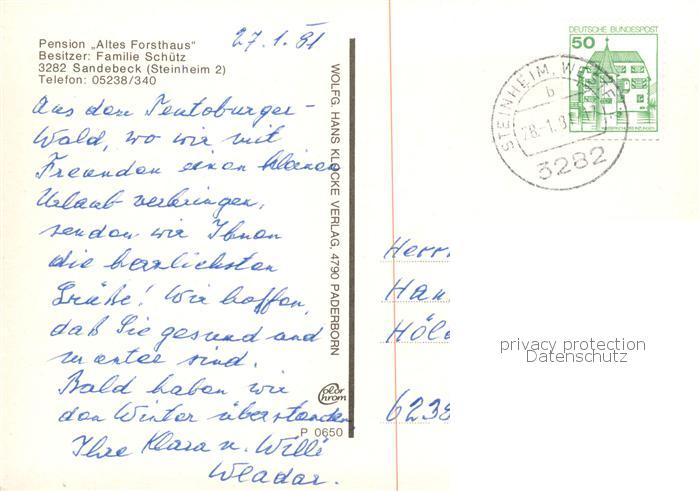 Pension „Altes Forsthaus"
Besitzer: Familie Schütz
3282 Sandebeck (Steinheim 2)
Telefon: 05238/340
27.1.81
Aus dem Teutoburger-
Wald, wo wir mit
Freunden einen kleinen
Urlaub verbringen,
senden wir Ihnen
die herzlichsten
Grüße! Wir hoffen,
daß Sie gesund und
munter sind.
Bald haben wir
den Winter überstanden
Ihre Klara u. Willi
Wladar.
WOLFG. HANS KLOCKE VERLAG, 4790 PADERBORN
color
chrom
P 0650
DEUTSCHE BUNDESPOST
50
WASSERSCHLOSS INZLINGEN
STEINHEIM, WESTF
b
28.-1.81
3282
Herrn
Han
Höl
6238
privacy protection
Datenschutz